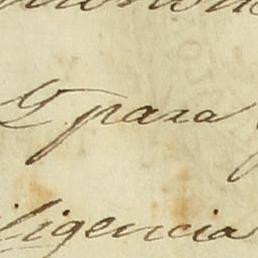 y para
iligencia